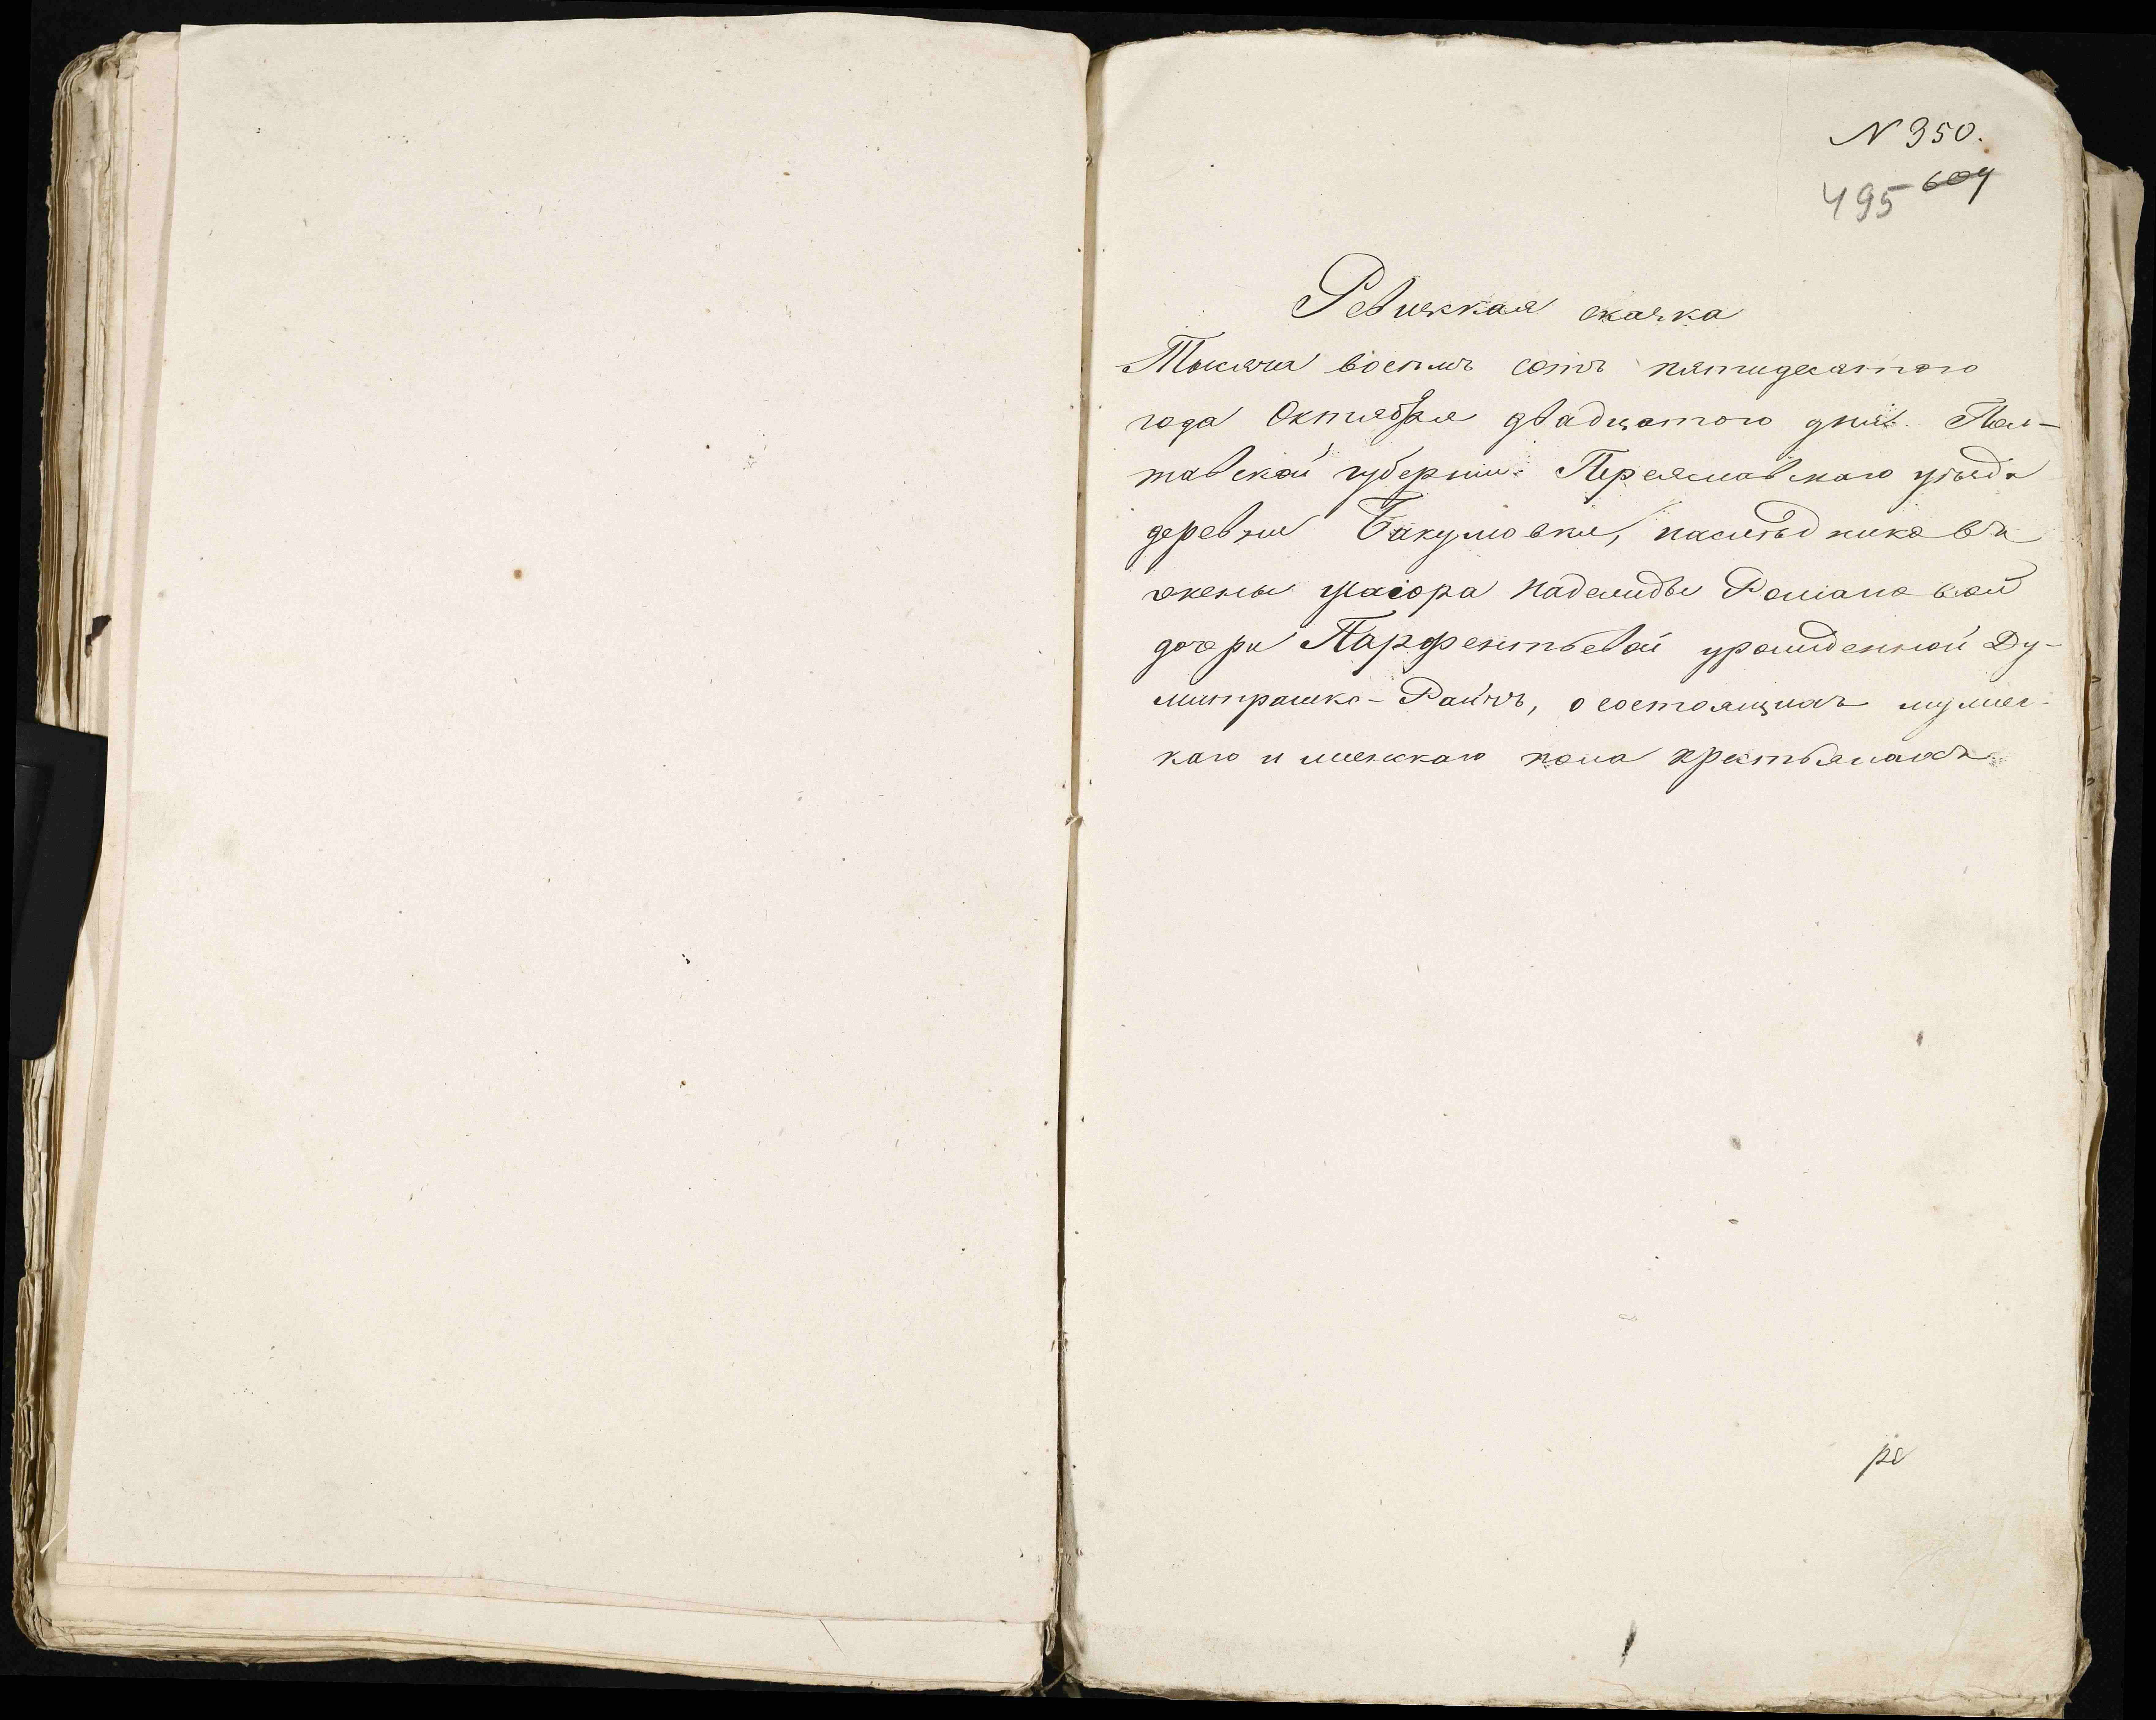 N 950.
495 604
Ревижкая скаска
Тысяча восемь сотъ пятидесятого
года Октября двадцатого дня. Пол-
тавской губернии Переяславского уѣзда
деревни Бакумовки, наслѣдниковъ
жены маіора Надежды Романовой
дочери Парфентьевой урожденной Ду-
митрашко-Райчъ, о состоящихъ мужес-
каго и женскаго пола крестьянахъ